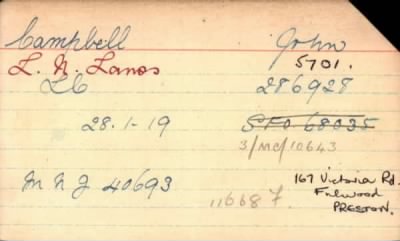 Campbell John
L. N. Lancs 5701.
L/C 286928
28.1-19 SFO 68035
3/MC/10643
M N J 40693
11668 F.
167 Victoria Rd.
Fulwood
PRESTON.